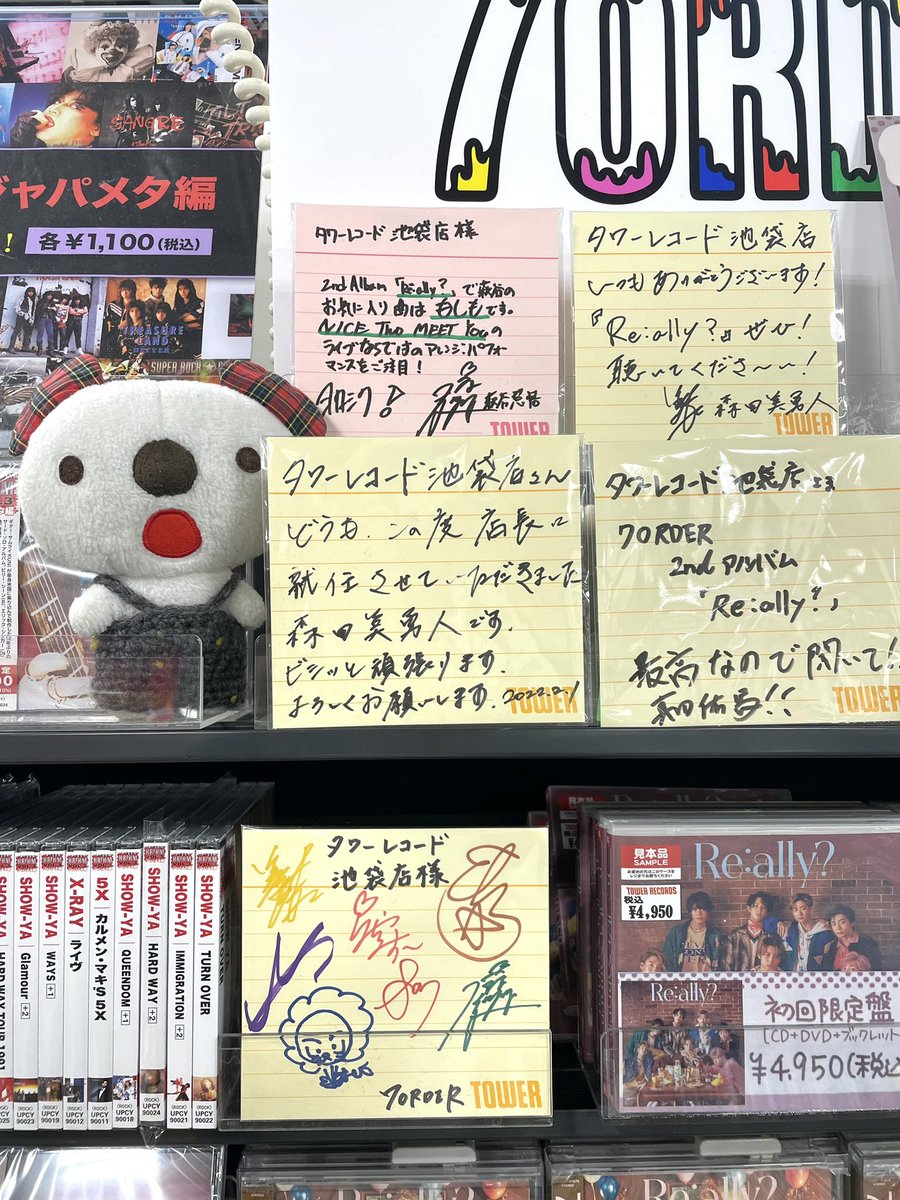 7ORD
SANGRE
ジャパメタ編
! 各￥1,100(税込)
TREASURE
LAND
SUPER ROCK
タワーレコード 池袋店様
2nd Album 「Re:ally?」で萩谷の
お気に入り曲は もしも です。
NICE TWO MEET YOUの
ライブならではのアレンジ・パフォー
マンスをご注目！
萩谷慧悟
TOWER
タワーレコード 池袋店
いつもありがとうございます!
『Re:ally?』ぜひ!
聴いてくださ〜い!
森田美勇人
TOWER
タワーレコード 池袋店さん
どうも、この度 店長に
就任させていただきました
森田美勇人です。
ビシッと頑張ります。
よろしくお願いします。2022.2.1
TOWER
タワーレコード 池袋店さま
7ORDER
2nd アルバム
「Re:ally?」
最高なので聞いて!!
真田佑馬!!
TOWER
SHOW-YA
HARD WAY TOUR 1991
SHOW-YA Glamour +2
UPCY 90023
SHOW-YA WAYS +1
UPCY 90019
X-RAY ライヴ
UPCY 90012
5X カルメン・マキ5X
UPCY 90011
SHOW-YA QUEENDOM +1
UPCY 90018
SHOW-YA HARD WAY +2
UPCY 90024
SHOW-YA IMMIGRATION +2
UPCY 90021
SHOW-YA TURN OVER
UPCY 90022
タワーレコード
池袋店様
7ORDER TOWER
見本品
SAMPLE
TOWER RECORDS
税込
¥4,950
Re:ally?
Re:ally?
初回限定盤
[CD+DVD+ブックレット
¥4,950(税込